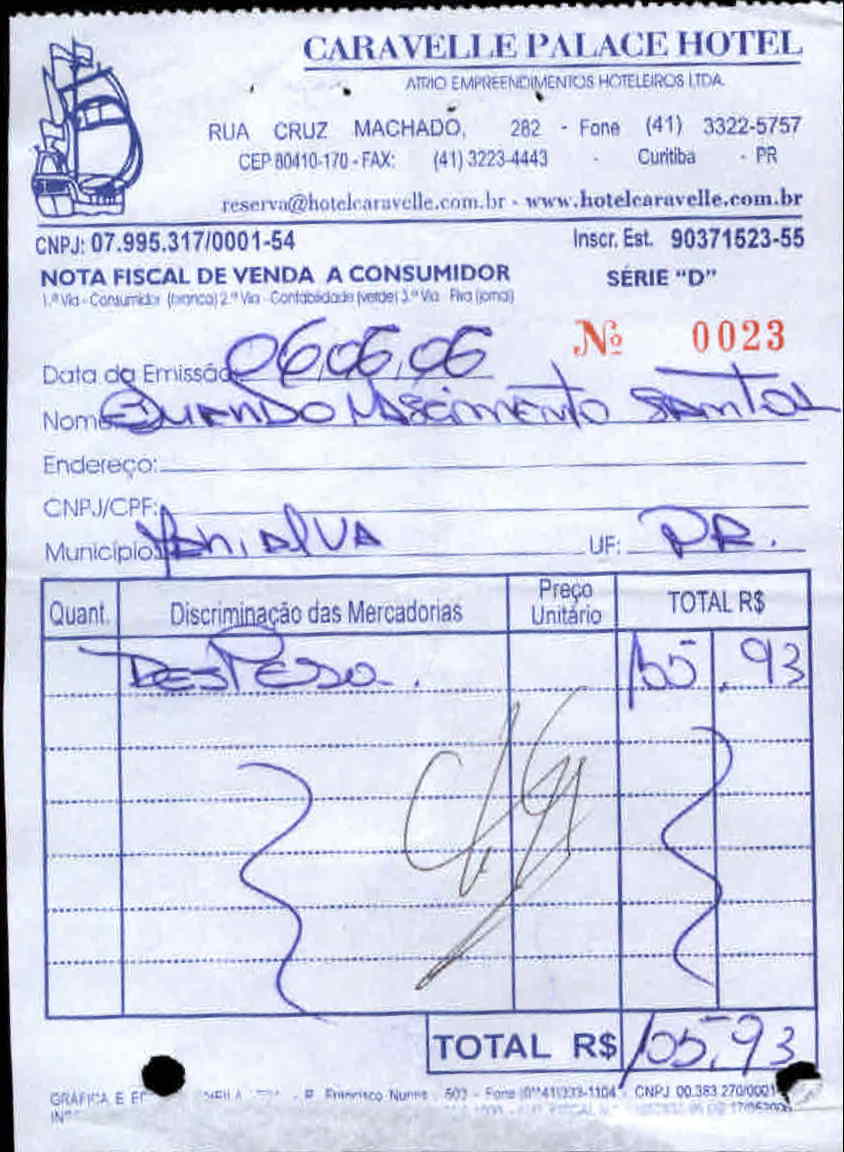 CARAVELLE PALACE HOTEL
ATRIO EMPREENDIMENTOS HOTELEIROS LTDA.
RUA CRUZ MACHADO, 282 - Fone (41) 3322-5757
CEP 80410-170 - FAX: (41) 3223-4443 - Curitiba - PR
reserva@hotelcaravelle.com.br - www.hotelcaravelle.com.br
CNPJ: 07.995.317/0001-54 Inscr. Est. 90371523-55
NOTA FISCAL DE VENDA A CONSUMIDOR SÉRIE "D"
1.ª Via - Consumidor (branca) 2.ª Via - Contabilidade (verde) 3.ª Via - Fixa (jornal)
Nº 0023
Data da Emissão 06,06,06
Nome NASCIMENTO SANTOS
Endereço:
CNPJ/CPF:
Município UF: PR.
Quant. Discriminação das Mercadorias Preço Unitário TOTAL R$
DESPESA. 105,93
TOTAL R$ 105,93
GRÁFICA E Francisco Nunes, 503 - Fone (0**41)333-1104 - CNPJ 00.383.270/0001